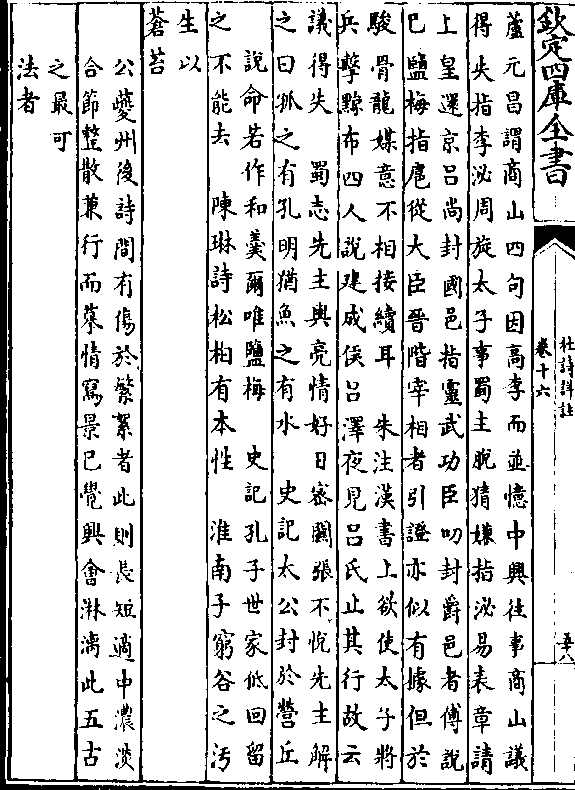 欽定四庫全書
杜詩詳註
卷十六
五十八
蘆元昌謂商山四句因高李而並憶中興往事商山議
得失指李泌周旋太子事蜀主脫猜嫌指泌易表章請
上皇還京呂尚封國邑指靈武功臣叨封爵邑者傅說
已鹽梅指扈從大臣晉階宰相者引證亦似有據但於
駿骨龍媒意不相接續耳　朱注漢書上欲使太子將
兵擊黥布四人說建成侯呂澤夜見呂氏止其行故云
議得失　蜀志先主與亮情好日密關張不悅先主解
之曰孤之有孔明猶魚之有水　史記太公封於營丘
說命若作和羹爾唯鹽梅　史記孔子世家低回留
之不能去　陳琳詩松柏有本性　淮南子窮谷之汚
生以
蒼苔
公夔州後詩間有傷於繁絮者此則長短適中濃淡
合節整散兼行而摹情寫景已覺興會淋漓此五古
之最可
法者